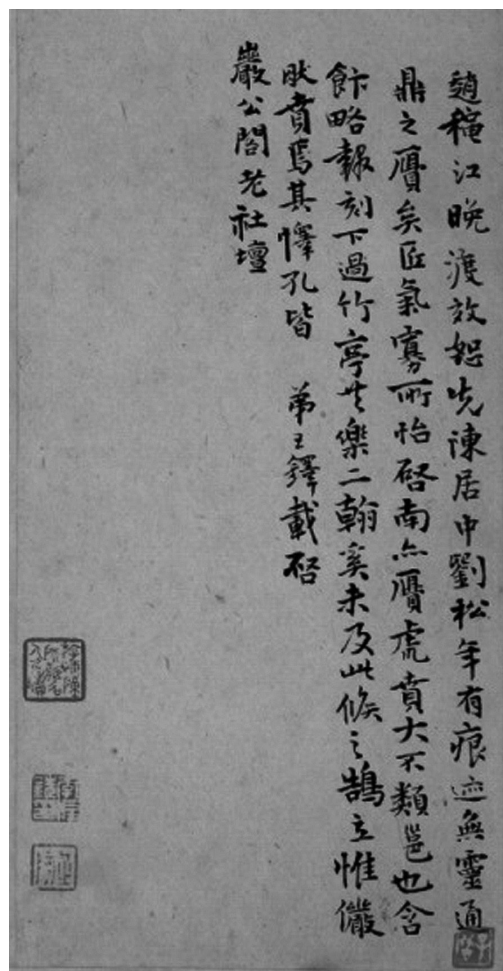 趙穜江晚渡效恕先諫居中劉松年有痕迹無靈通
鼎之贗矣匠氣寡所怡啓南亦贗虎賁大不類邕也含
飰略報刻下過竹亭共樂二翰奚未及此候之鵠立惟儼
肰賁焉其懌孔皆 弟王鐸載啓
嚴公閣老社壇